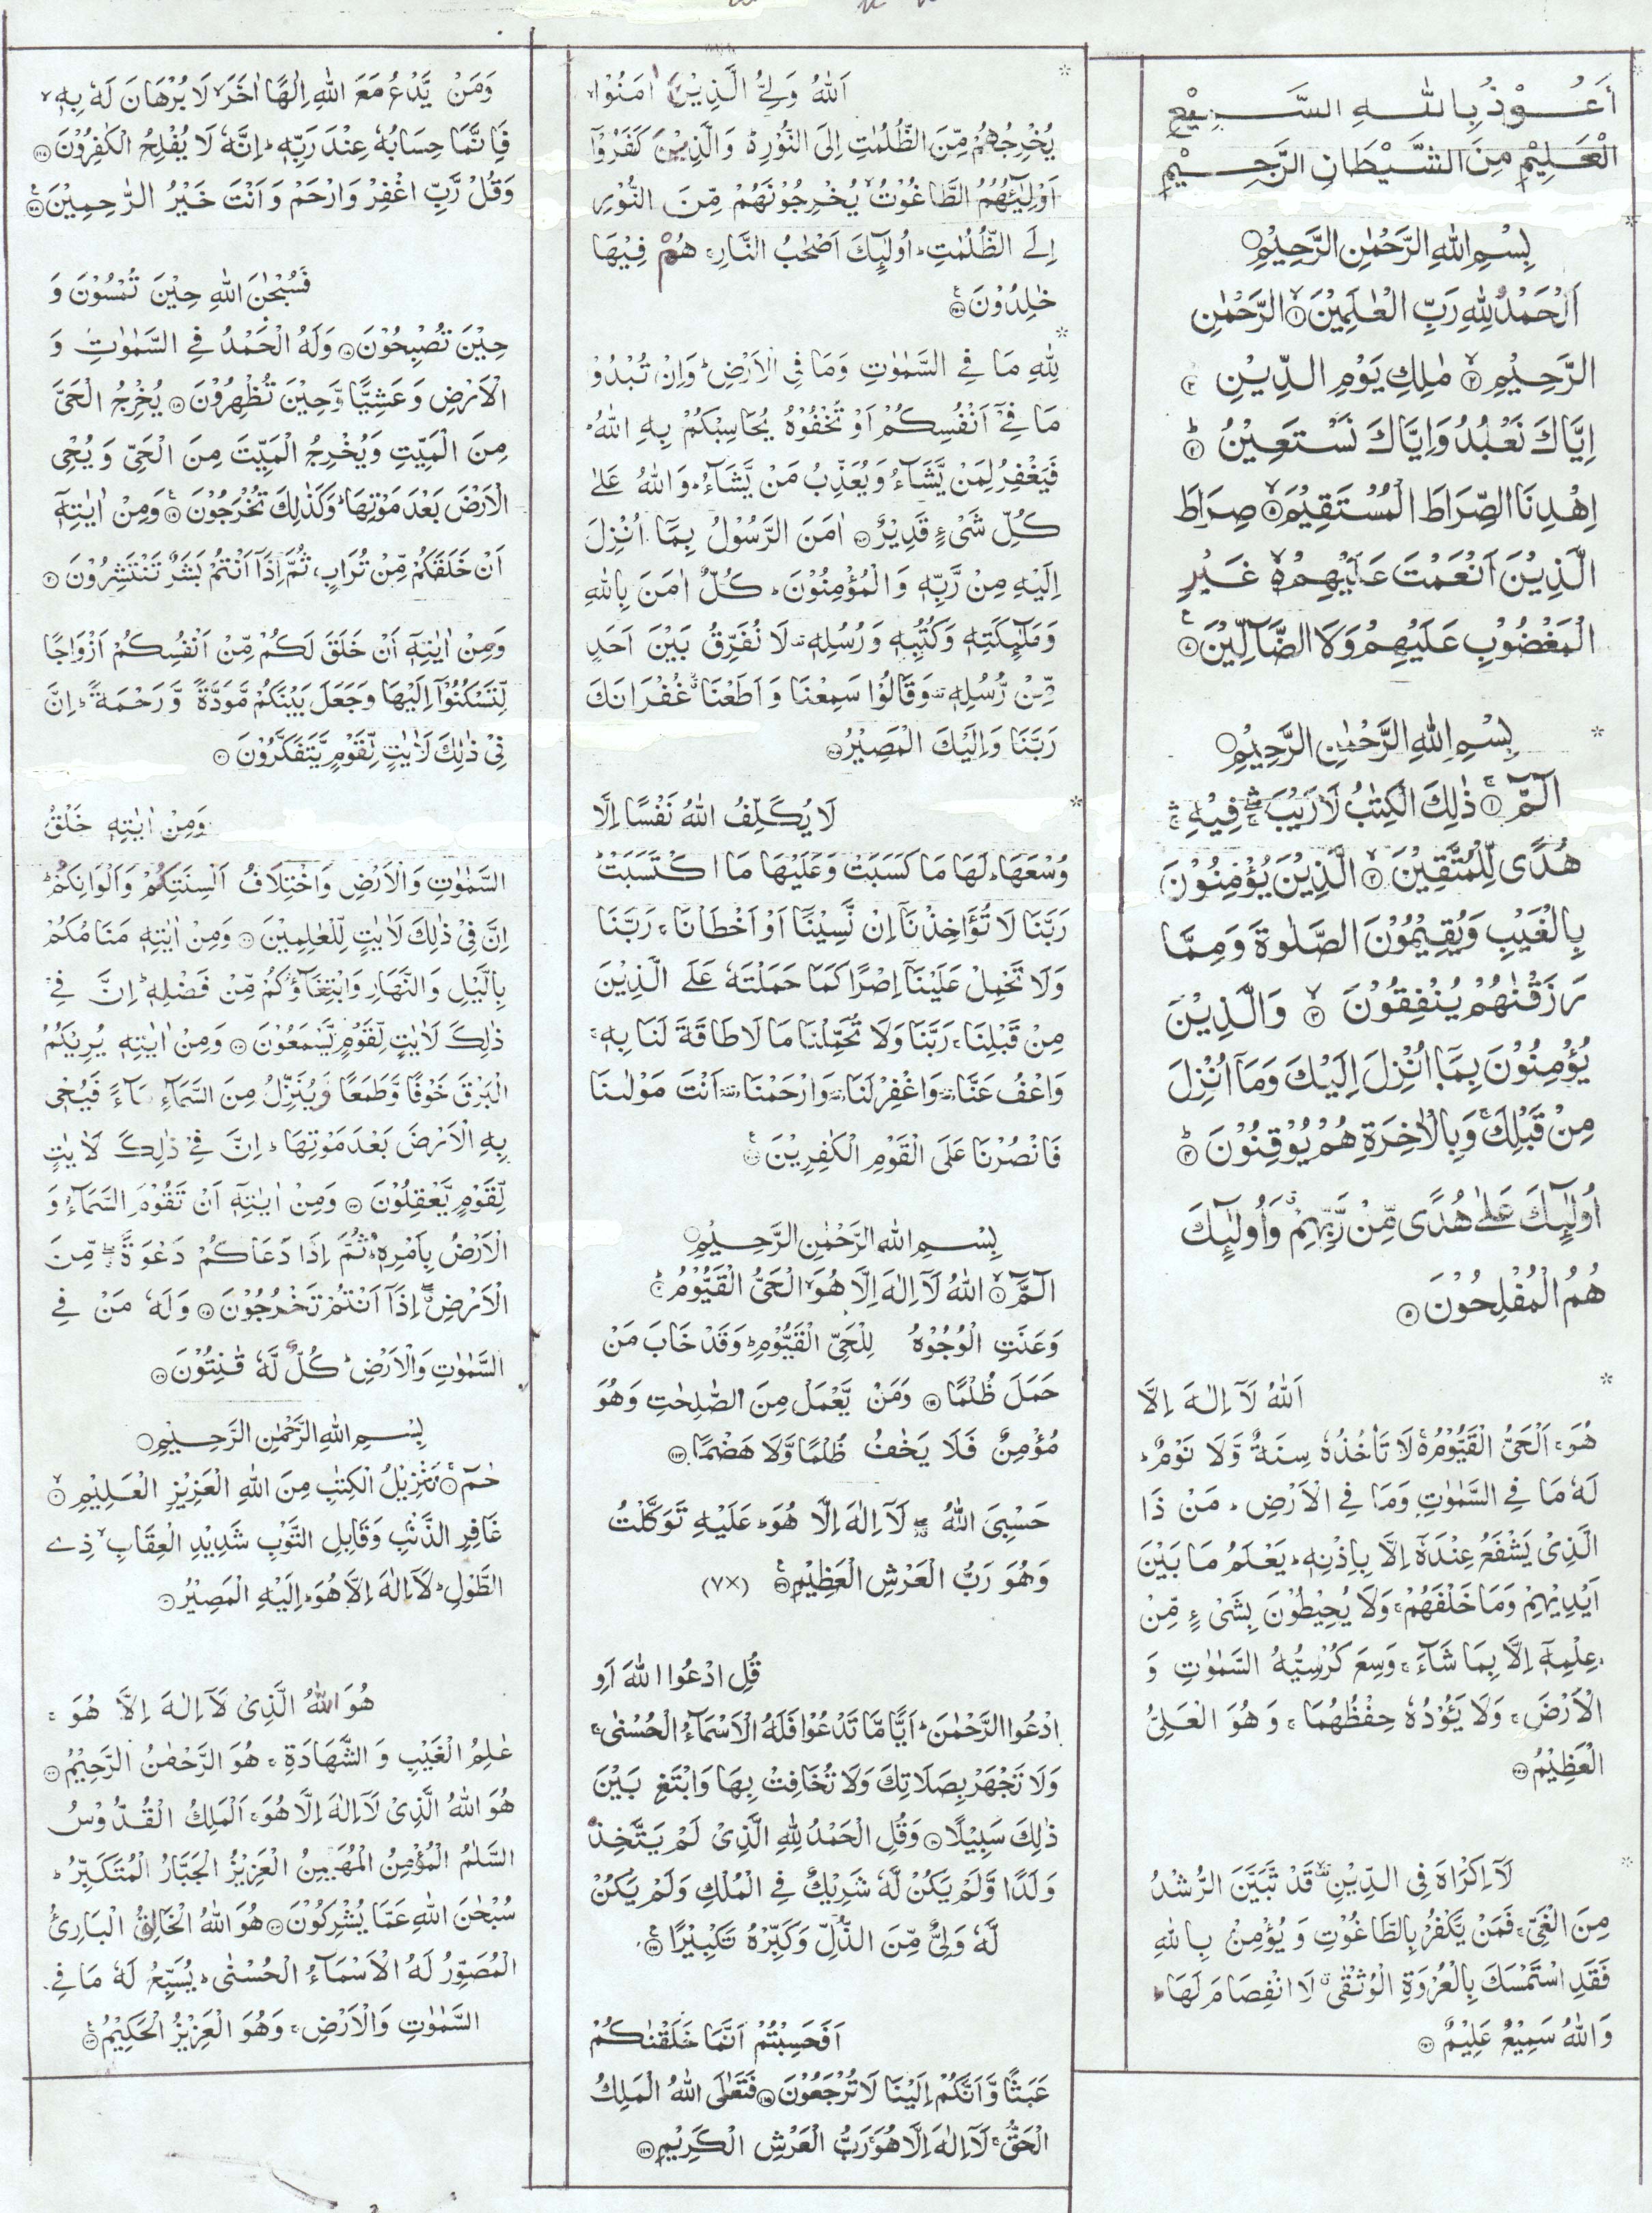 اَعُوْذُ بِاللهِ السَّمِيْعِ
الْعَلِيْمِ مِنَ الشَّيْطَانِ الرَّجِيْمِ
بِسْمِ اللهِ الرَّحْمٰنِ الرَّحِيْمِ
اَلْحَمْدُ لِلّٰهِ رَبِّ الْعٰلَمِيْنَ ۙ۱ الرَّحْمٰنِ
الرَّحِيْمِ ۙ۲ مٰلِكِ يَوْمِ الدِّيْنِ ۳
اِيَّاكَ نَعْبُدُ وَاِيَّاكَ نَسْتَعِيْنُ ۴ؕ
اِهْدِنَا الصِّرَاطَ الْمُسْتَقِيْمَ ۙ۵ صِرَاطَ
الَّذِيْنَ اَنْعَمْتَ عَلَيْهِمْ ۶ۙ غَيْرِ
الْمَغْضُوْبِ عَلَيْهِمْ وَلَا الضَّآلِّيْنَ ۷
* بِسْمِ اللهِ الرَّحْمٰنِ الرَّحِيْمِ
الٓمّٓ ۱ۚ ذٰلِكَ الْكِتٰبُ لَا رَيْبَ ۛۖ فِيْهِ ۛۚ
هُدًى لِّلْمُتَّقِيْنَ ۙ۲ الَّذِيْنَ يُؤْمِنُوْنَ
بِالْغَيْبِ وَيُقِيْمُوْنَ الصَّلٰوةَ وَمِمَّا
رَزَقْنٰهُمْ يُنْفِقُوْنَ ۙ۳ وَالَّذِيْنَ
يُؤْمِنُوْنَ بِمَآ اُنْزِلَ اِلَيْكَ وَمَآ اُنْزِلَ
مِنْ قَبْلِكَ ۚ وَبِالْاٰخِرَةِ هُمْ يُوْقِنُوْنَ ۴ؕ
اُولٰٓئِكَ عَلٰى هُدًى مِّنْ رَّبِّهِمْ ۗ وَاُولٰٓئِكَ
هُمُ الْمُفْلِحُوْنَ ۵
* اَللهُ لَآ اِلٰهَ اِلَّا
هُوَ ۚ اَلْحَيُّ الْقَيُّوْمُ ۚ لَا تَأْخُذُهٗ سِنَةٌ وَّلَا نَوْمٌ ؕ
لَهٗ مَا فِي السَّمٰوٰتِ وَمَا فِي الْاَرْضِ ؕ مَنْ ذَا
الَّذِيْ يَشْفَعُ عِنْدَهٗٓ اِلَّا بِاِذْنِهٖ ؕ يَعْلَمُ مَا بَيْنَ
اَيْدِيْهِمْ وَمَا خَلْفَهُمْ ۚ وَلَا يُحِيْطُوْنَ بِشَيْءٍ مِّنْ
عِلْمِهٖٓ اِلَّا بِمَا شَآءَ ۚ وَسِعَ كُرْسِيُّهُ السَّمٰوٰتِ وَ
الْاَرْضَ ۚ وَلَا يَـُٔوْدُهٗ حِفْظُهُمَا ۚ وَهُوَ الْعَلِيُّ
الْعَظِيْمُ ۲۵۵
* لَآ اِكْرَاهَ فِي الدِّيْنِ ۙ قَدْ تَّبَيَّنَ الرُّشْدُ
مِنَ الْغَيِّ ۚ فَمَنْ يَّكْفُرْ بِالطَّاغُوْتِ وَيُؤْمِنْ بِاللهِ
فَقَدِ اسْتَمْسَكَ بِالْعُرْوَةِ الْوُثْقٰى ۗ لَا انْفِصَامَ لَهَا ؕ
وَاللهُ سَمِيْعٌ عَلِيْمٌ ۲۵۶
* اَللهُ وَلِيُّ الَّذِيْنَ اٰمَنُوْا ۙ
يُخْرِجُهُمْ مِّنَ الظُّلُمٰتِ اِلَى النُّوْرِ ؕ وَالَّذِيْنَ كَفَرُوْٓا
اَوْلِيٰٓـُٔهُمُ الطَّاغُوْتُ ۙ يُخْرِجُوْنَهُمْ مِّنَ النُّوْرِ
اِلَى الظُّلُمٰتِ ؕ اُولٰٓئِكَ اَصْحٰبُ النَّارِ ۚ هُمْ فِيْهَا
خٰلِدُوْنَ ۲۵۷
* لِلّٰهِ مَا فِي السَّمٰوٰتِ وَمَا فِي الْاَرْضِ ؕ وَاِنْ تُبْدُوْا
مَا فِيْٓ اَنْفُسِكُمْ اَوْ تُخْفُوْهُ يُحَاسِبْكُمْ بِهِ اللهُ ؕ
فَيَغْفِرُ لِمَنْ يَّشَآءُ وَيُعَذِّبُ مَنْ يَّشَآءُ ؕ وَاللهُ عَلٰى
كُلِّ شَيْءٍ قَدِيْرٌ ۲۸۴ اٰمَنَ الرَّسُوْلُ بِمَآ اُنْزِلَ
اِلَيْهِ مِنْ رَّبِّهٖ وَالْمُؤْمِنُوْنَ ؕ كُلٌّ اٰمَنَ بِاللهِ
وَمَلٰٓئِكَتِهٖ وَكُتُبِهٖ وَرُسُلِهٖ ۗ لَا نُفَرِّقُ بَيْنَ اَحَدٍ
مِّنْ رُّسُلِهٖ ۗ وَقَالُوْا سَمِعْنَا وَاَطَعْنَا ۗ غُفْرَانَكَ
رَبَّنَا وَاِلَيْكَ الْمَصِيْرُ ۲۸۵
* لَا يُكَلِّفُ اللهُ نَفْسًا اِلَّا
وُسْعَهَا ؕ لَهَا مَا كَسَبَتْ وَعَلَيْهَا مَا اكْتَسَبَتْ ؕ
رَبَّنَا لَا تُؤَاخِذْنَآ اِنْ نَّسِيْنَآ اَوْ اَخْطَاْنَا ۚ رَبَّنَا
وَلَا تَحْمِلْ عَلَيْنَآ اِصْرًا كَمَا حَمَلْتَهٗ عَلَى الَّذِيْنَ
مِنْ قَبْلِنَا ۚ رَبَّنَا وَلَا تُحَمِّلْنَا مَا لَا طَاقَةَ لَنَا بِهٖ ۚ
وَاعْفُ عَنَّا ۥ وَاغْفِرْ لَنَا ۥ وَارْحَمْنَا ۥ اَنْتَ مَوْلٰىنَا
فَانْصُرْنَا عَلَى الْقَوْمِ الْكٰفِرِيْنَ
بِسْمِ اللهِ الرَّحْمٰنِ الرَّحِيْمِ
الٓمّٓ ۙ۱ اللهُ لَآ اِلٰهَ اِلَّا هُوَ ۙ الْحَيُّ الْقَيُّوْمُ ؕ
وَعَنَتِ الْوُجُوْهُ لِلْحَيِّ الْقَيُّوْمِ ؕ وَقَدْ خَابَ مَنْ
حَمَلَ ظُلْمًا ۱۱۱ وَمَنْ يَّعْمَلْ مِنَ الصّٰلِحٰتِ وَهُوَ
مُؤْمِنٌ فَلَا يَخٰفُ ظُلْمًا وَّلَا هَضْمًا ۱۱۲
حَسْبِيَ اللهُ ۖ لَآ اِلٰهَ اِلَّا هُوَ ؕ عَلَيْهِ تَوَكَّلْتُ
وَهُوَ رَبُّ الْعَرْشِ الْعَظِيْمِ (٧×)
قُلِ ادْعُوا اللهَ اَوِ
ادْعُوا الرَّحْمٰنَ ؕ اَيًّا مَّا تَدْعُوْا فَلَهُ الْاَسْمَآءُ الْحُسْنٰى ۚ
وَلَا تَجْهَرْ بِصَلَاتِكَ وَلَا تُخَافِتْ بِهَا وَابْتَغِ بَيْنَ
ذٰلِكَ سَبِيْلًا ۱۱۰ وَقُلِ الْحَمْدُ لِلّٰهِ الَّذِيْ لَمْ يَتَّخِذْ
وَلَدًا وَّلَمْ يَكُنْ لَّهٗ شَرِيْكٌ فِي الْمُلْكِ وَلَمْ يَكُنْ
لَّهٗ وَلِيٌّ مِّنَ الذُّلِّ وَكَبِّرْهُ تَكْبِيْرًا ۱۱۱
اَفَحَسِبْتُمْ اَنَّمَا خَلَقْنٰكُمْ
عَبَثًا وَّاَنَّكُمْ اِلَيْنَا لَا تُرْجَعُوْنَ ۱۱۵ فَتَعٰلَى اللهُ الْمَلِكُ
الْحَقُّ ۚ لَآ اِلٰهَ اِلَّا هُوَ ۚ رَبُّ الْعَرْشِ الْكَرِيْمِ ۱۱۶
وَمَنْ يَّدْعُ مَعَ اللهِ اِلٰهًا اٰخَرَ ۙ لَا بُرْهَانَ لَهٗ بِهٖ ۙ
فَاِنَّمَا حِسَابُهٗ عِنْدَ رَبِّهٖ ؕ اِنَّهٗ لَا يُفْلِحُ الْكٰفِرُوْنَ ۱۱۷
وَقُلْ رَّبِّ اغْفِرْ وَارْحَمْ وَاَنْتَ خَيْرُ الرّٰحِمِيْنَ ۱۱۸
فَسُبْحٰنَ اللهِ حِيْنَ تُمْسُوْنَ وَ
حِيْنَ تُصْبِحُوْنَ ۱۷ وَلَهُ الْحَمْدُ فِي السَّمٰوٰتِ وَ
الْاَرْضِ وَعَشِيًّا وَّحِيْنَ تُظْهِرُوْنَ ۱۸ يُخْرِجُ الْحَيَّ
مِنَ الْمَيِّتِ وَيُخْرِجُ الْمَيِّتَ مِنَ الْحَيِّ وَيُحْيِ
الْاَرْضَ بَعْدَ مَوْتِهَا ؕ وَكَذٰلِكَ تُخْرَجُوْنَ ۱۹ وَمِنْ اٰيٰتِهٖٓ
اَنْ خَلَقَكُمْ مِّنْ تُرَابٍ ثُمَّ اِذَآ اَنْتُمْ بَشَرٌ تَنْتَشِرُوْنَ ۲۰
وَمِنْ اٰيٰتِهٖٓ اَنْ خَلَقَ لَكُمْ مِّنْ اَنْفُسِكُمْ اَزْوَاجًا
لِّتَسْكُنُوْٓا اِلَيْهَا وَجَعَلَ بَيْنَكُمْ مَّوَدَّةً وَّرَحْمَةً ؕ اِنَّ
فِيْ ذٰلِكَ لَاٰيٰتٍ لِّقَوْمٍ يَّتَفَكَّرُوْنَ ۲۱
وَمِنْ اٰيٰتِهٖ خَلْقُ
السَّمٰوٰتِ وَالْاَرْضِ وَاخْتِلَافُ اَلْسِنَتِكُمْ وَاَلْوَانِكُمْ ؕ
اِنَّ فِيْ ذٰلِكَ لَاٰيٰتٍ لِّلْعٰلِمِيْنَ ۲۲ وَمِنْ اٰيٰتِهٖ مَنَامُكُمْ
بِالَّيْلِ وَالنَّهَارِ وَابْتِغَآؤُكُمْ مِّنْ فَضْلِهٖ ؕ اِنَّ فِيْ
ذٰلِكَ لَاٰيٰتٍ لِّقَوْمٍ يَّسْمَعُوْنَ ۲۳ وَمِنْ اٰيٰتِهٖ يُرِيْكُمُ
الْبَرْقَ خَوْفًا وَّطَمَعًا وَّيُنَزِّلُ مِنَ السَّمَآءِ مَآءً فَيُحْيٖ
بِهِ الْاَرْضَ بَعْدَ مَوْتِهَا ؕ اِنَّ فِيْ ذٰلِكَ لَاٰيٰتٍ
لِّقَوْمٍ يَّعْقِلُوْنَ ۲۴ وَمِنْ اٰيٰتِهٖٓ اَنْ تَقُوْمَ السَّمَآءُ وَ
الْاَرْضُ بِاَمْرِهٖ ؕ ثُمَّ اِذَا دَعَاكُمْ دَعْوَةً ۖ مِّنَ
الْاَرْضِ ۖ اِذَآ اَنْتُمْ تَخْرُجُوْنَ ۲۵ وَلَهٗ مَنْ فِي
السَّمٰوٰتِ وَالْاَرْضِ ؕ كُلٌّ لَّهٗ قٰنِتُوْنَ ۲۶
بِسْمِ اللهِ الرَّحْمٰنِ الرَّحِيْمِ
حٰمٓ ۱ۚ تَنْزِيْلُ الْكِتٰبِ مِنَ اللهِ الْعَزِيْزِ الْعَلِيْمِ ۙ۲
غَافِرِ الذَّنْبِ وَقَابِلِ التَّوْبِ شَدِيْدِ الْعِقَابِ ۙ ذِي
الطَّوْلِ ؕ لَآ اِلٰهَ اِلَّا هُوَ ؕ اِلَيْهِ الْمَصِيْرُ ۳
هُوَ اللهُ الَّذِيْ لَآ اِلٰهَ اِلَّا هُوَ ۚ
عٰلِمُ الْغَيْبِ وَالشَّهَادَةِ ۚ هُوَ الرَّحْمٰنُ الرَّحِيْمُ ۲۲
هُوَ اللهُ الَّذِيْ لَآ اِلٰهَ اِلَّا هُوَ ۚ اَلْمَلِكُ الْقُدُّوْسُ
السَّلٰمُ الْمُؤْمِنُ الْمُهَيْمِنُ الْعَزِيْزُ الْجَبَّارُ الْمُتَكَبِّرُ ؕ
سُبْحٰنَ اللهِ عَمَّا يُشْرِكُوْنَ ۲۳ هُوَ اللهُ الْخَالِقُ الْبَارِئُ
الْمُصَوِّرُ لَهُ الْاَسْمَآءُ الْحُسْنٰى ؕ يُسَبِّحُ لَهٗ مَا فِي
السَّمٰوٰتِ وَالْاَرْضِ ۚ وَهُوَ الْعَزِيْزُ الْحَكِيْمُ ۲۴